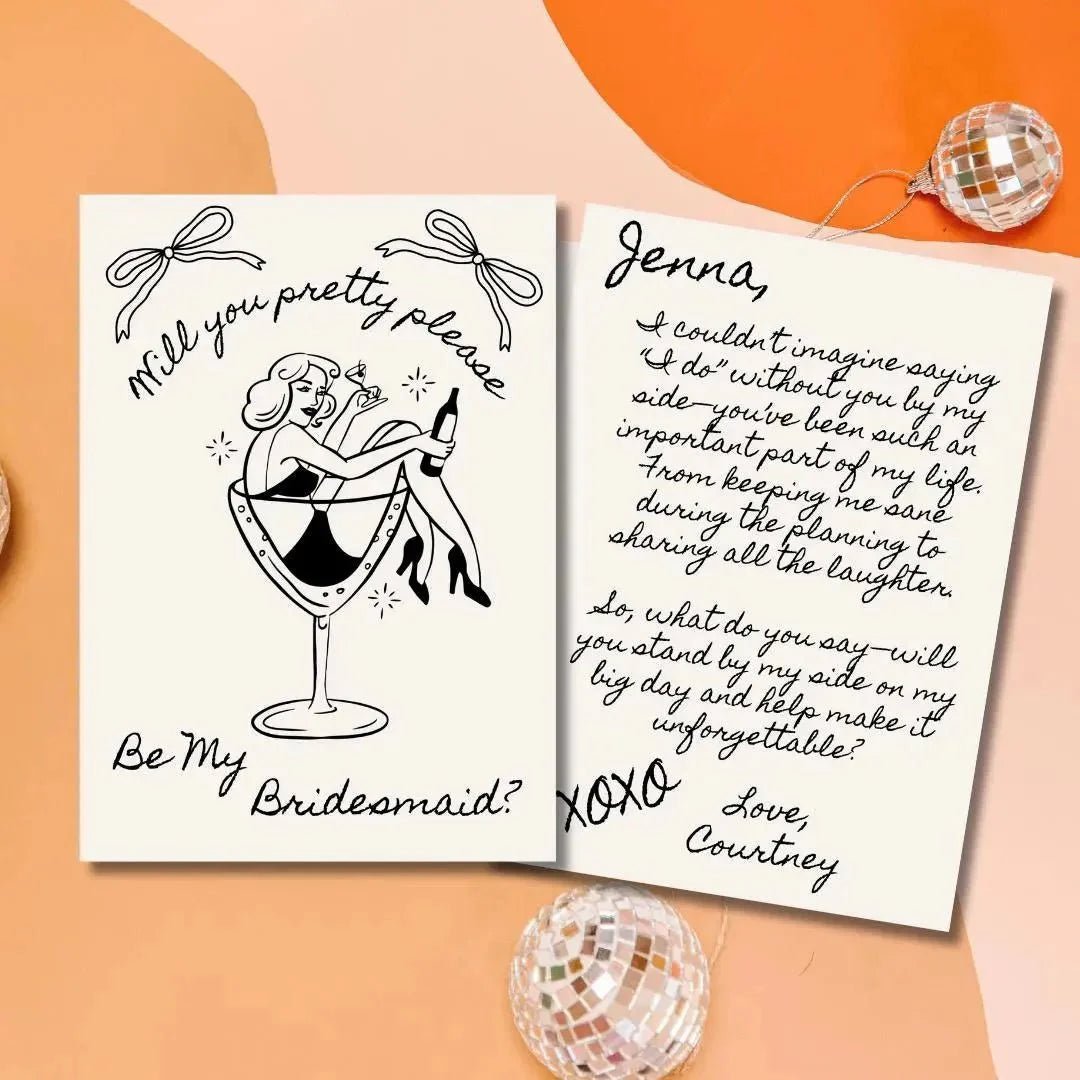 Will you pretty please
Be My
Bridesmaid?
Jenna,
I couldn't imagine saying
"I do" without you by my
side—you've been such an
important part of my life.
From keeping me sane
during the planning to
sharing all the laughter.
So, what do you say—will
you stand by my side on my
big day and help make it
unforgettable?
XOXO
Love,
Courtney